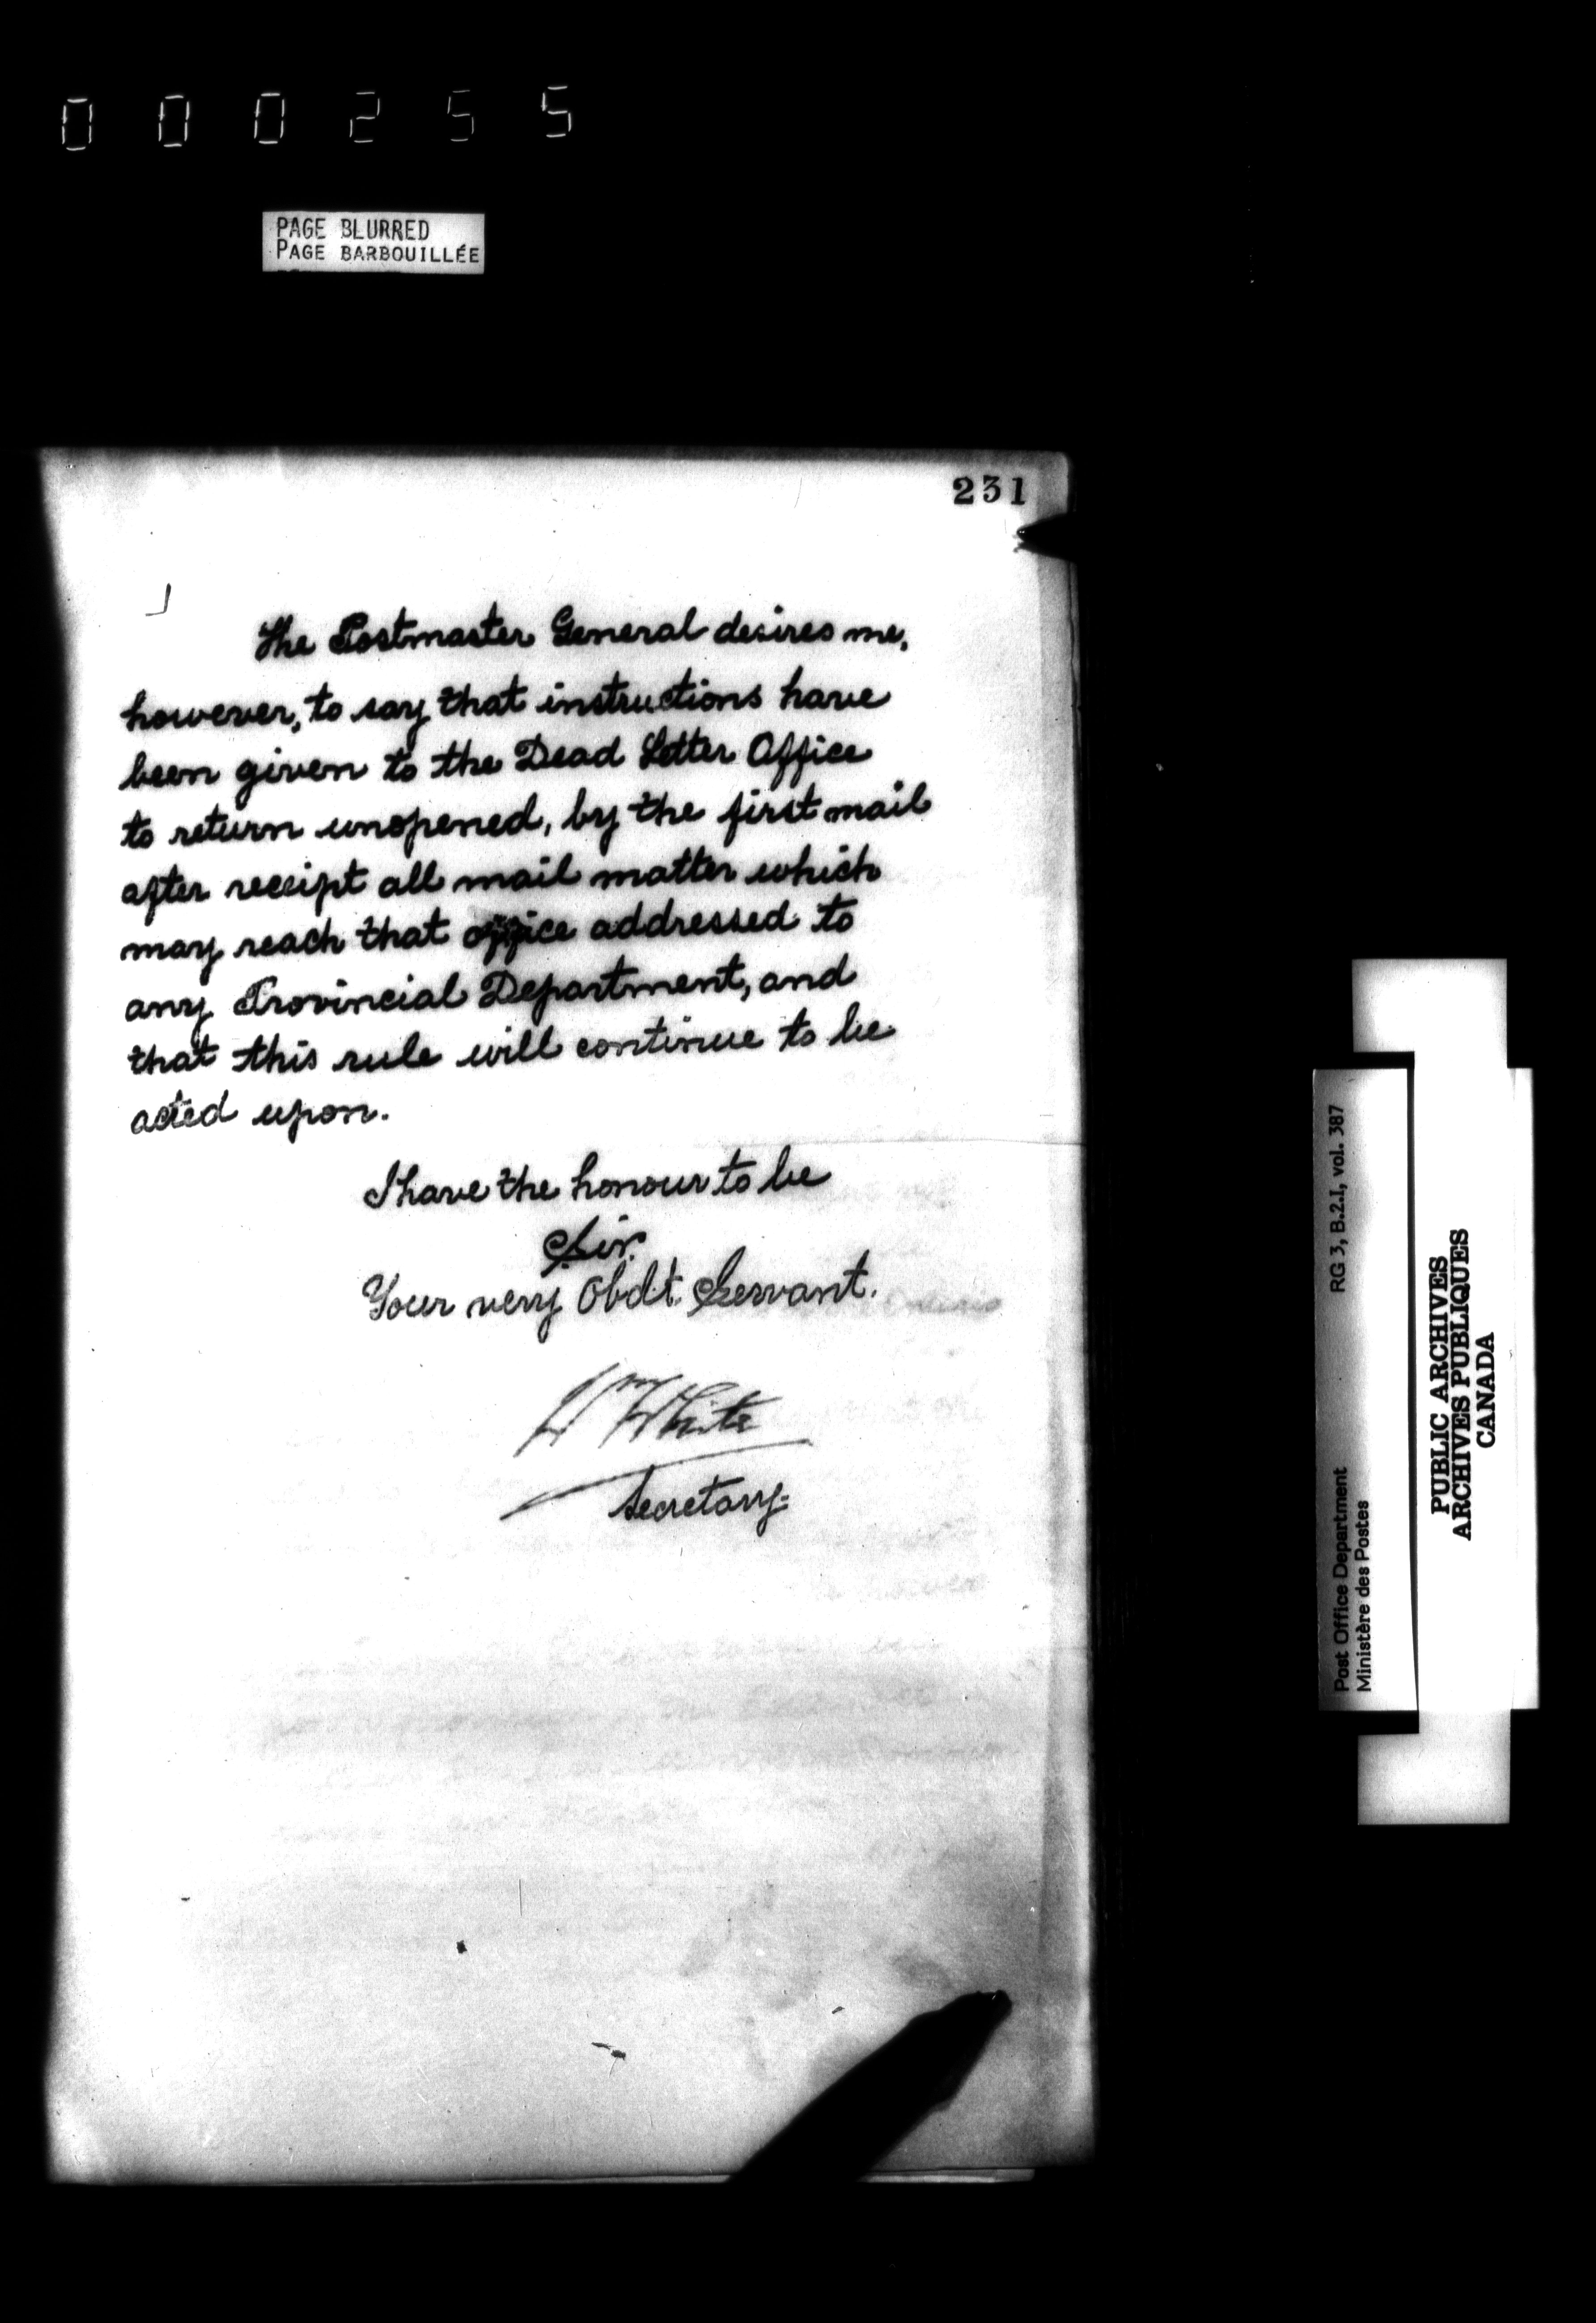 000255
PAGE BLURRED
PAGE BARBOUILLÉE
231
The Postmaster General desires me,
however, to say that instructions have
been given to the Dead Letter Office
to return unopened, by the first mail
after receipt all mail matter which
may reach that office addressed to
any Provincial Department, and
that this rule will continue to be
acted upon.
I have the honour to be
Sir.
Your very Obdt. Servant.
Wm White
Secretary.
RG 3, B.2.1, vol. 387
Post Office Department
Ministère des Postes
PUBLIC ARCHIVES
ARCHIVES PUBLIQUES
CANADA